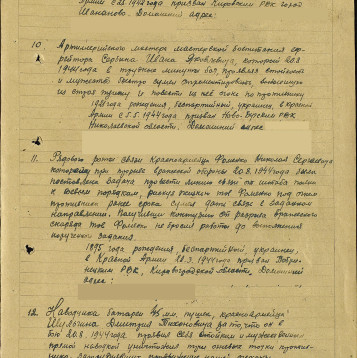 Армии с 23 1944 года призван Кировским РВК город
Домашний адрес:
10. Артиллерийского мастера мастерской боепитания еф-
рейтора Сорбина Ивана Яковлевича, который 20.8
1944 года в трудную минуту боя, проявляя стойкость
и мужество быстро сумел отремонтировать
из строя пушку и повести из нее огонь по противнику
1921 года рождения, беспартийный, украинец, в Красной
Армии с 5.5 1944 года призван Ново-Бугским РВК
Николаевской области, Домашний адрес
11. Рядового роты связи Красноармейца Фоменко Николая Сергеевича
которому при прорыве вражеской обороны 20.8 1944 года была
поставлена задача провести линию связи со штаба полка
к боевым порядкам, рискуя жизнью тов Фоменко под огнем
противника ранее срока сумел дать связь в заданном
направлении. Получивши контузию от разрыва вражеского
снаряда тов Фоменко не бросил работы до выполнения
порученного задания.
1895 года рождения, беспартийный, украинец,
в Красной Армии 28.3.1944 года призван Добро-
величским РВК, Кировоградской области, Домашний
адрес:
12. Наводчика батареи 45 мм, пушек, красноармейца
Шульгина Дмитрия Тихоновича за то что он в
бою 20.8.1944 года проявил себя стойким и мужественным
прямой наводкой уничтожил две огневые точки против-
ника